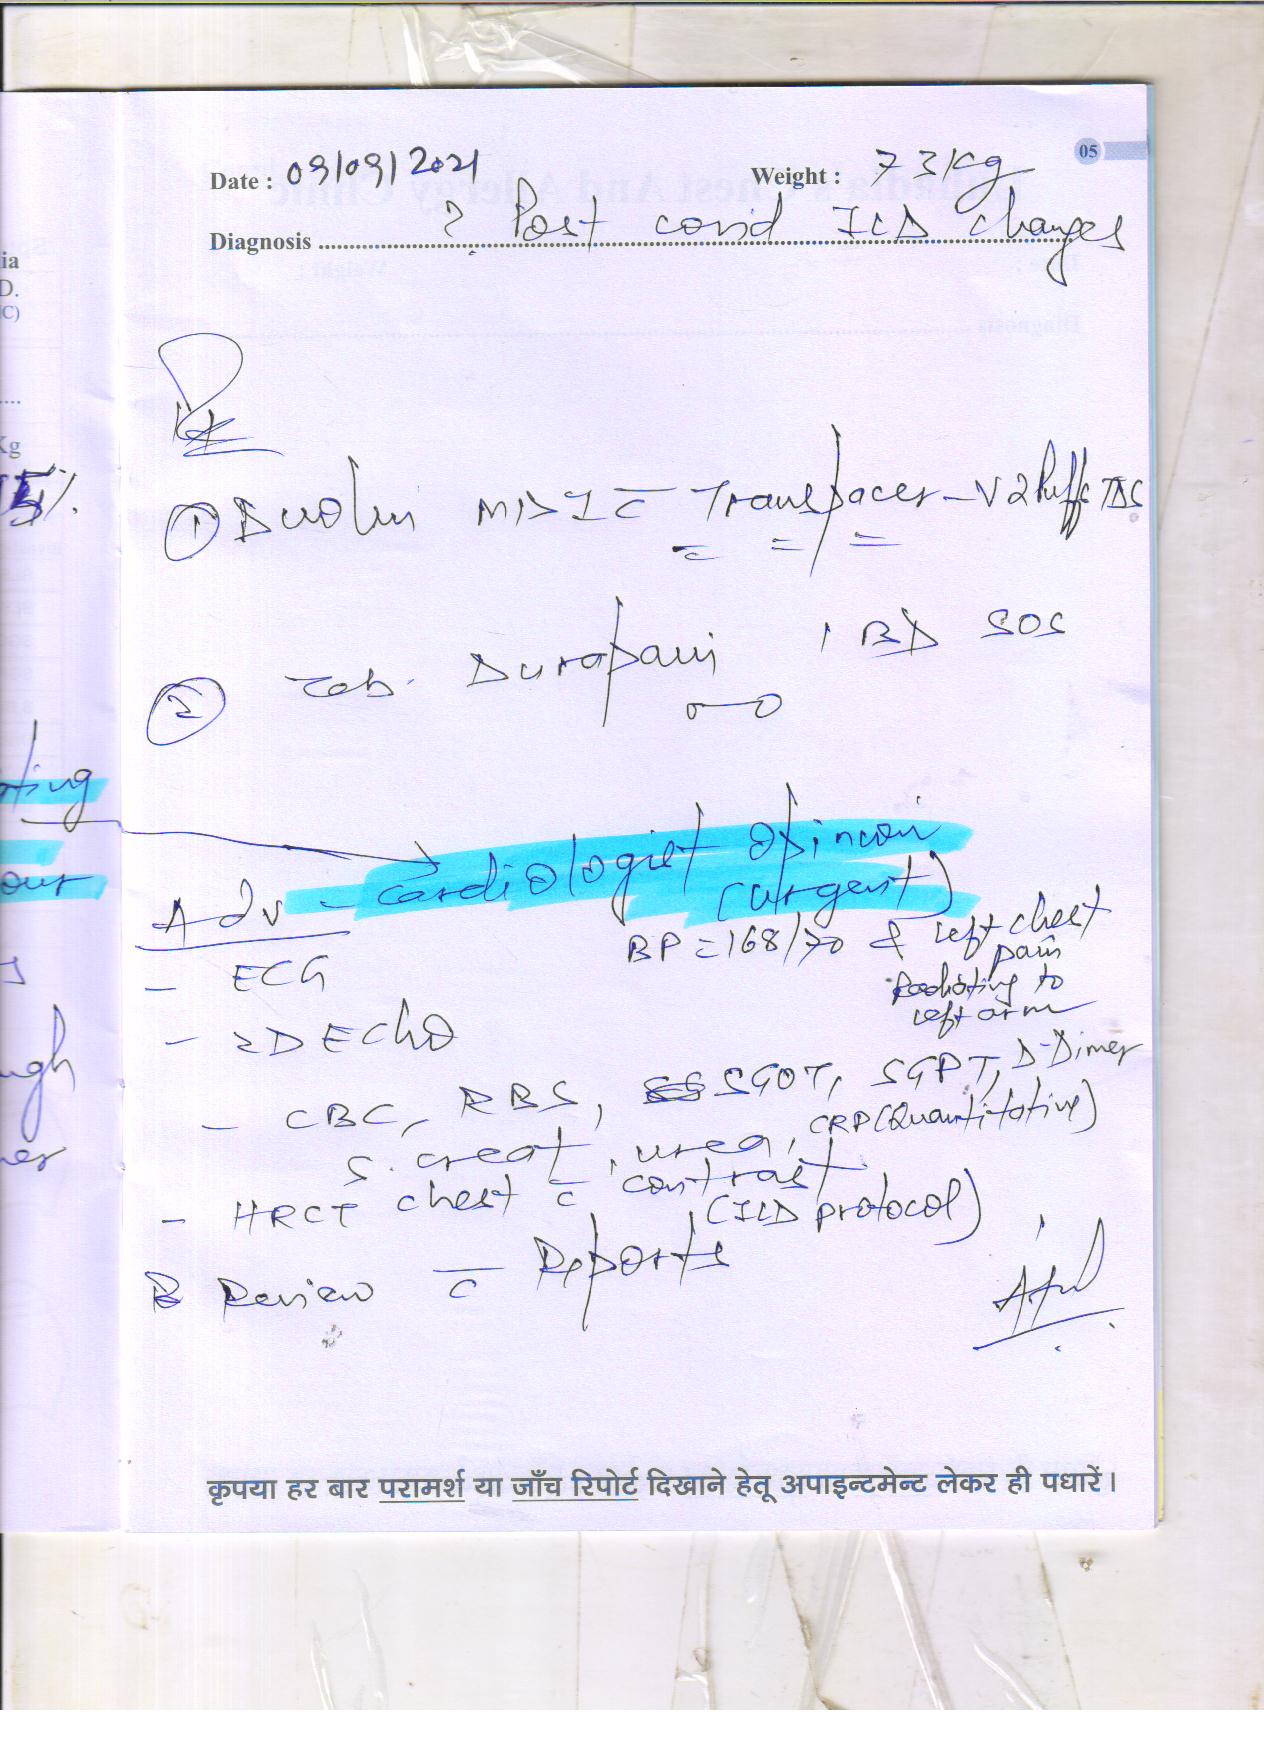 05
Date : 09/09/2021 Weight : 73Kg
Diagnosis ? Post covid ILD changes
Rx
① Duolin MDI c̄ Transpacer - 2 Puffs TDS
② Tab. Durapain 1 BD SOS
Adv - cardiologist opinion
(urgent)
BP = 168/70 & left chest
pain
Radiating to
left arm
- ECG
- 2D ECHO
- CBC, RBS, SGOT, SGPT, D-Dimer
S. creat, urea, CRP (Quantitative)
- HRCT chest c̄ contrast
(ILD protocol)
Review c̄ Reports
कृपया हर बार परामर्श या जाँच रिपोर्ट दिखाने हेतू अपाइन्टमेन्ट लेकर ही पधारें।
ia
D.
C)
Kg
5%.
ting
our
ugh